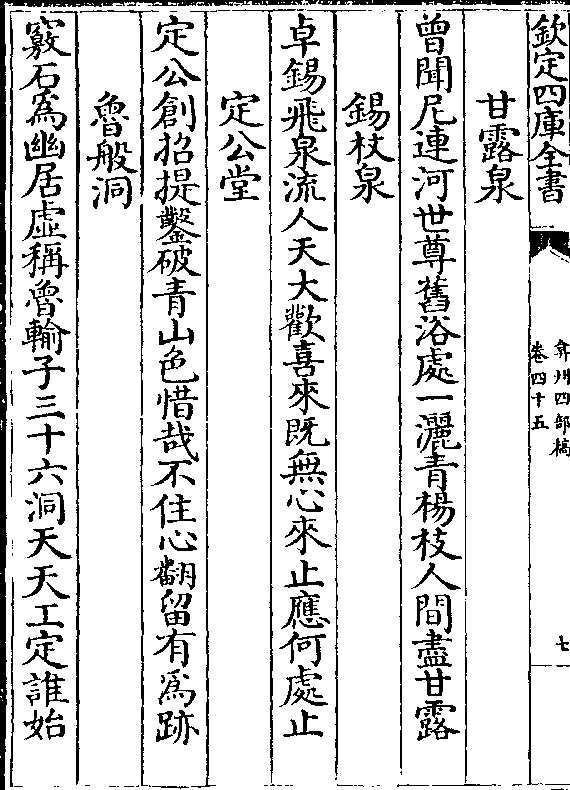 欽定四庫全書
弇州四部稿
卷四十五
七
甘露泉
曾聞尼連河世尊舊浴處一灑青楊枝人間盡甘露
錫杖泉
卓錫飛泉流人天大歡喜來既無心來止應何處止
定公堂
定公創招提鑿破青山色惜哉不住心翻留有爲跡
魯般洞
竅石爲幽居虛稱魯輸子三十六洞天天工定誰始